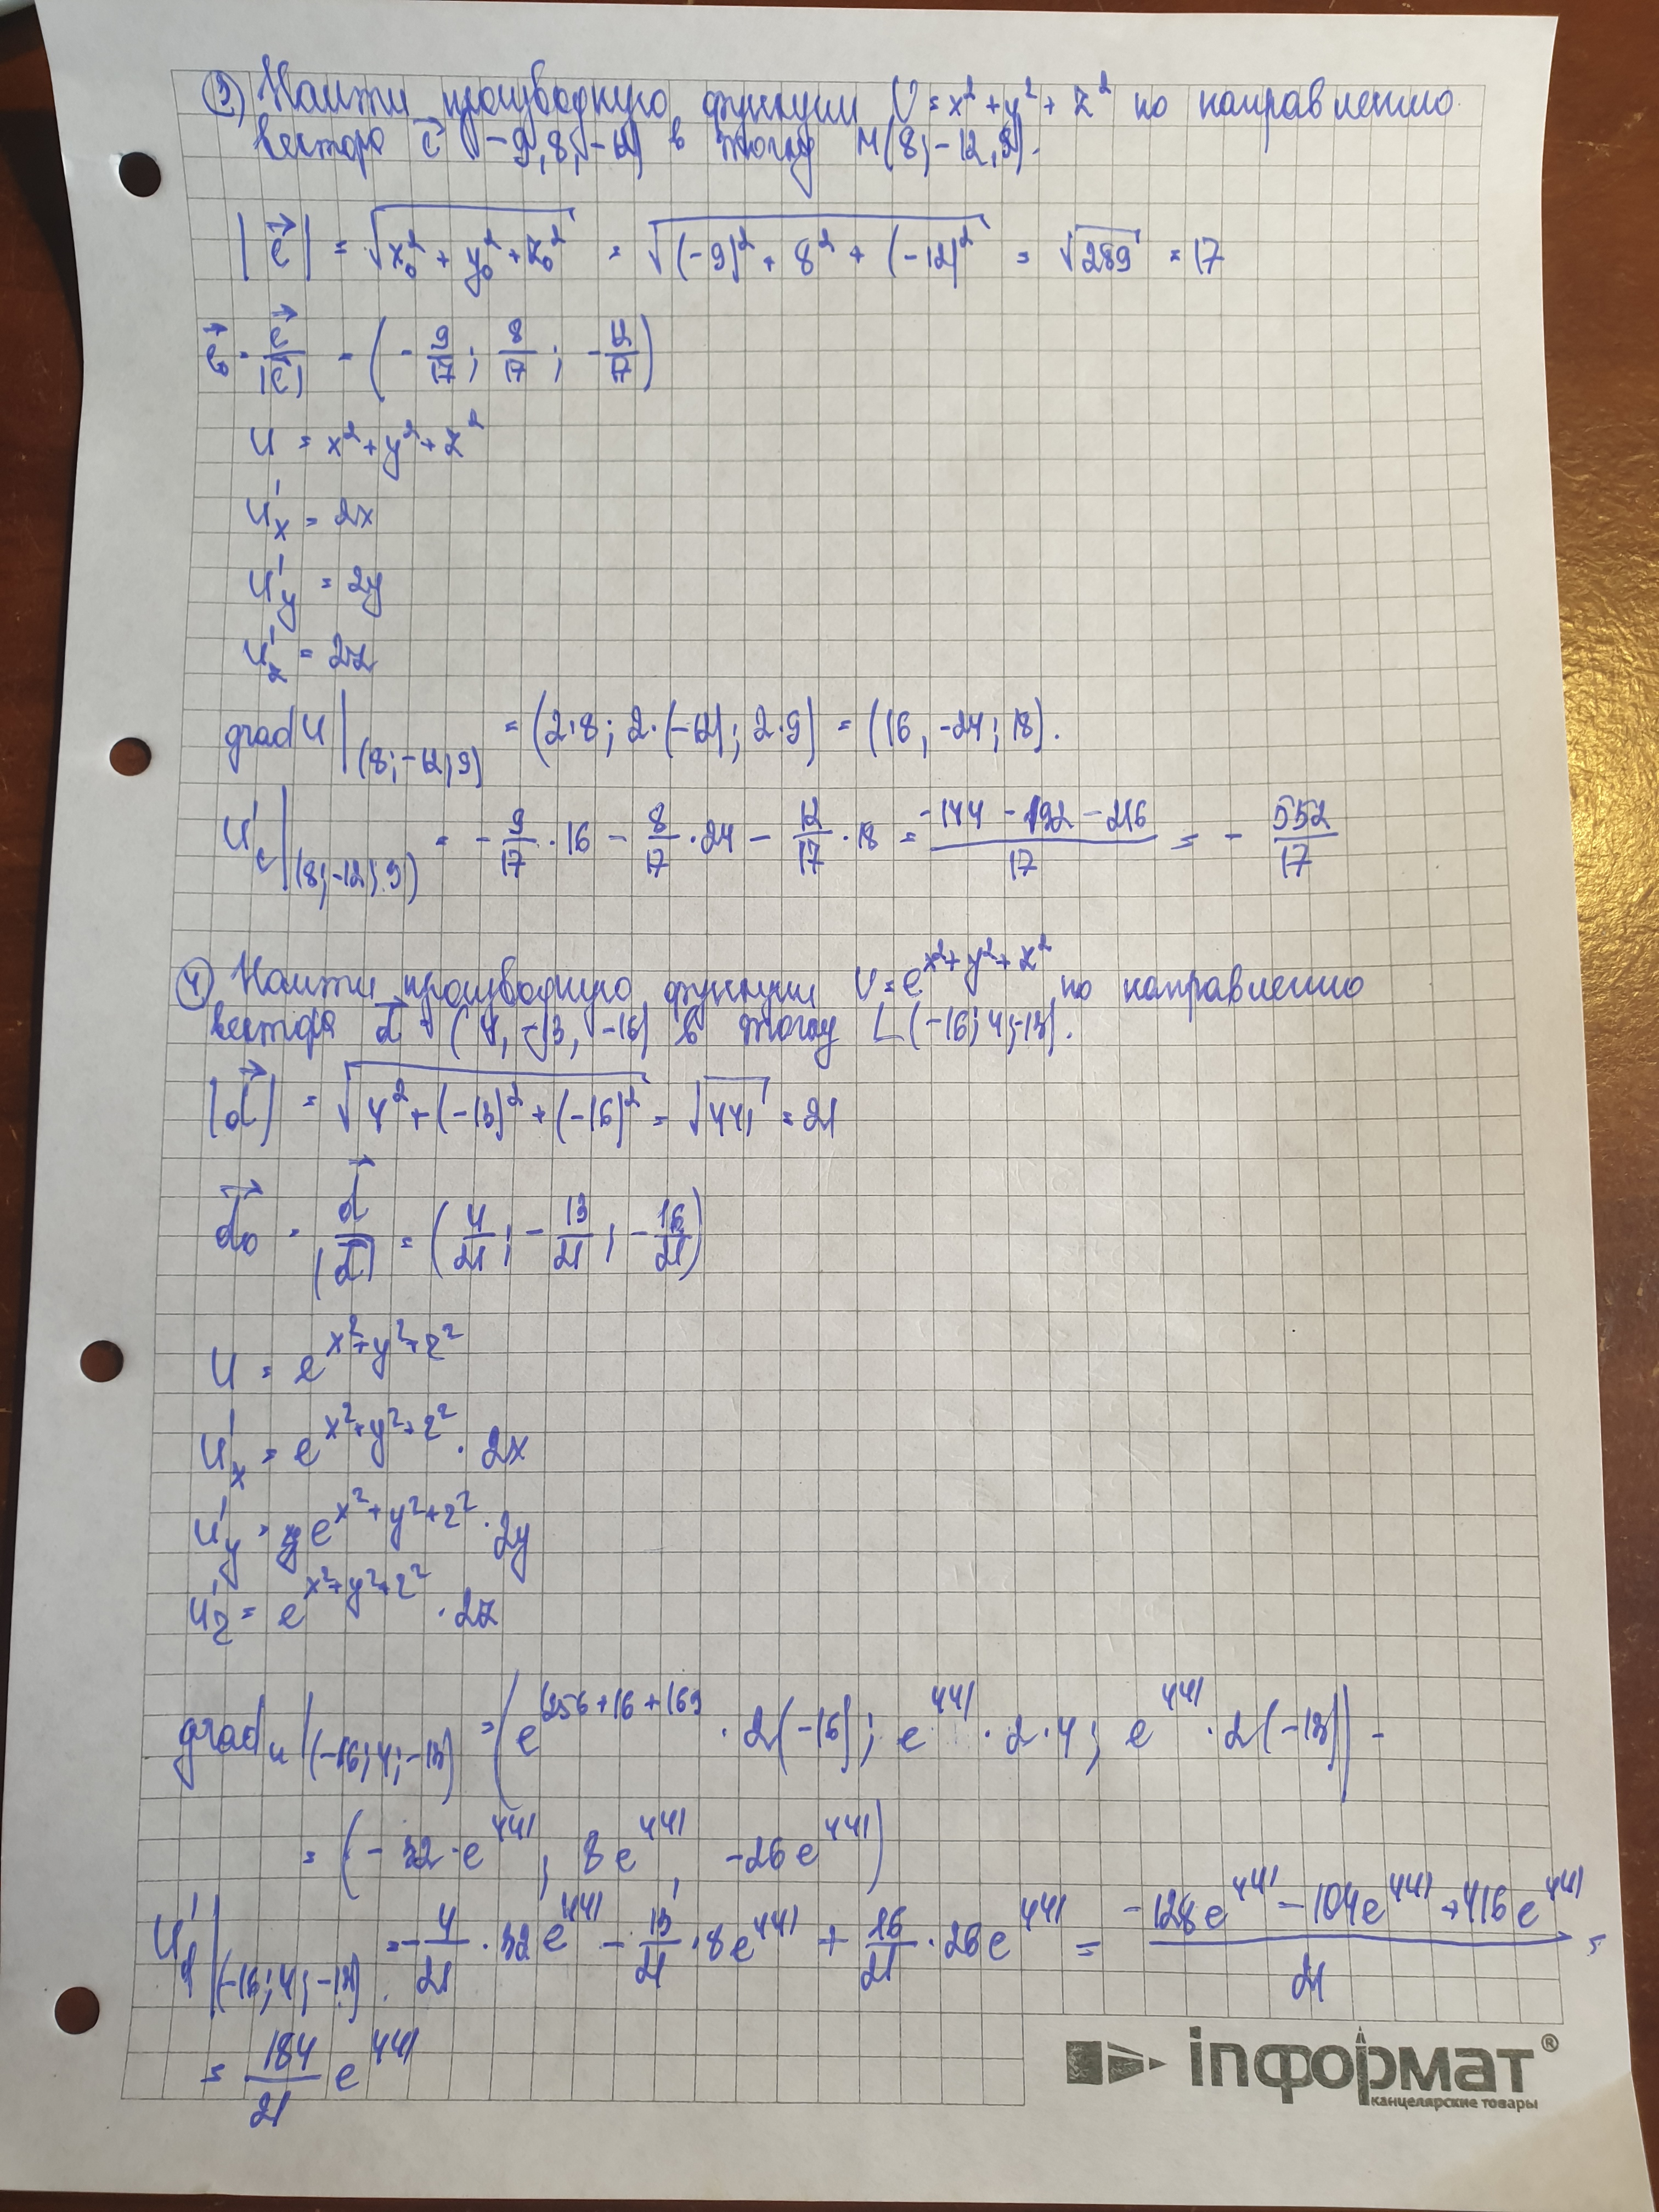 3) Найти производную функции U = x² + y² + z² по направлению
вектора c⃗ (-9, 8, -12) в точку M(8; -12, 9).
|c⃗| = √(x₀² + y₀² + z₀²) = √((-9)² + 8² + (-12)²) = √289 = 17
c⃗₀ = c⃗/|c⃗| = (-9/17; 8/17; -12/17)
U = x² + y² + z²
U'x = 2x
U'y = 2y
U'z = 2z
grad U|(8; -12; 9) = (2·8; 2·(-12); 2·9) = (16, -24; 18).
U'c|(8; -12; 9) = -9/17 · 16 - 8/17 · 24 - 12/17 · 18 = (-144 - 192 - 216)/17 = -552/17
4) Найти производную функции U = e^(x² + y² + z²) по направлению
вектора d⃗ (4, -13, -16) в точку L(-16; 4; -13).
|d⃗| = √(4² + (-13)² + (-16)²) = √441 = 21
d⃗₀ = d⃗/|d⃗| = (4/21; -13/21; -16/21)
U = e^(x²+y²+z²)
U'x = e^(x²+y²+z²) · 2x
U'y = e^(x²+y²+z²) · 2y
U'z = e^(x²+y²+z²) · 2z
grad u|(-16; 4; -13) = (e^(256+16+169) · 2(-16); e^441 · 2·4; e^441 · 2(-13)) =
= (-32·e^441, 8e^441, -26e^441)
U'd|(-16; 4; -13) = -4/21 · 32e^441 - 13/21 · 8e^441 + 16/21 · 26e^441 = (-128e^441 - 104e^441 + 416e^441)/21 =
= 184/21 e^441
inформат®
канцелярские товары